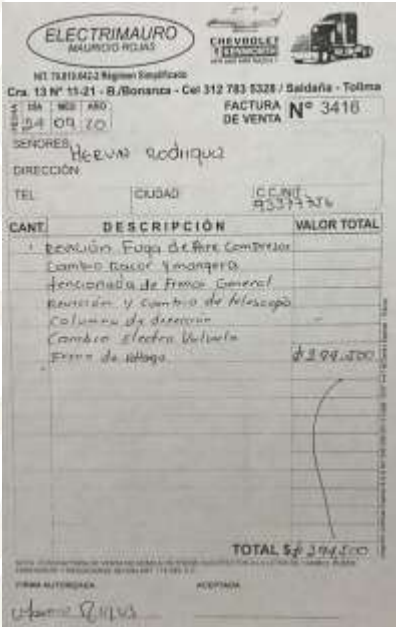 ELECTRIMAURO
MAURICIO ROJAS
CHEVROLET
KENWORTH
Cra. 13 Nº 11-21 - B./Bonanza - Cel 312 783 5328 / Saldaña - Tolima
FECHA DIA MES AÑO
24 09 20
FACTURA DE VENTA Nº 3416
SEÑORES Hervin Rodriguez
DIRECCIÓN
TEL CIUDAD C.C./NIT.
CANT. DESCRIPCIÓN VALOR TOTAL
1 Revisión Fuga de Aire Compresor
Cambio Racor y manguera
tencionada de Frenos General
Revisión y Cambio de telescopo
Columna de dirección
Cambio Electro Valvula
Freno de
TOTAL $
FIRMA AUTORIZADA ACEPTADA